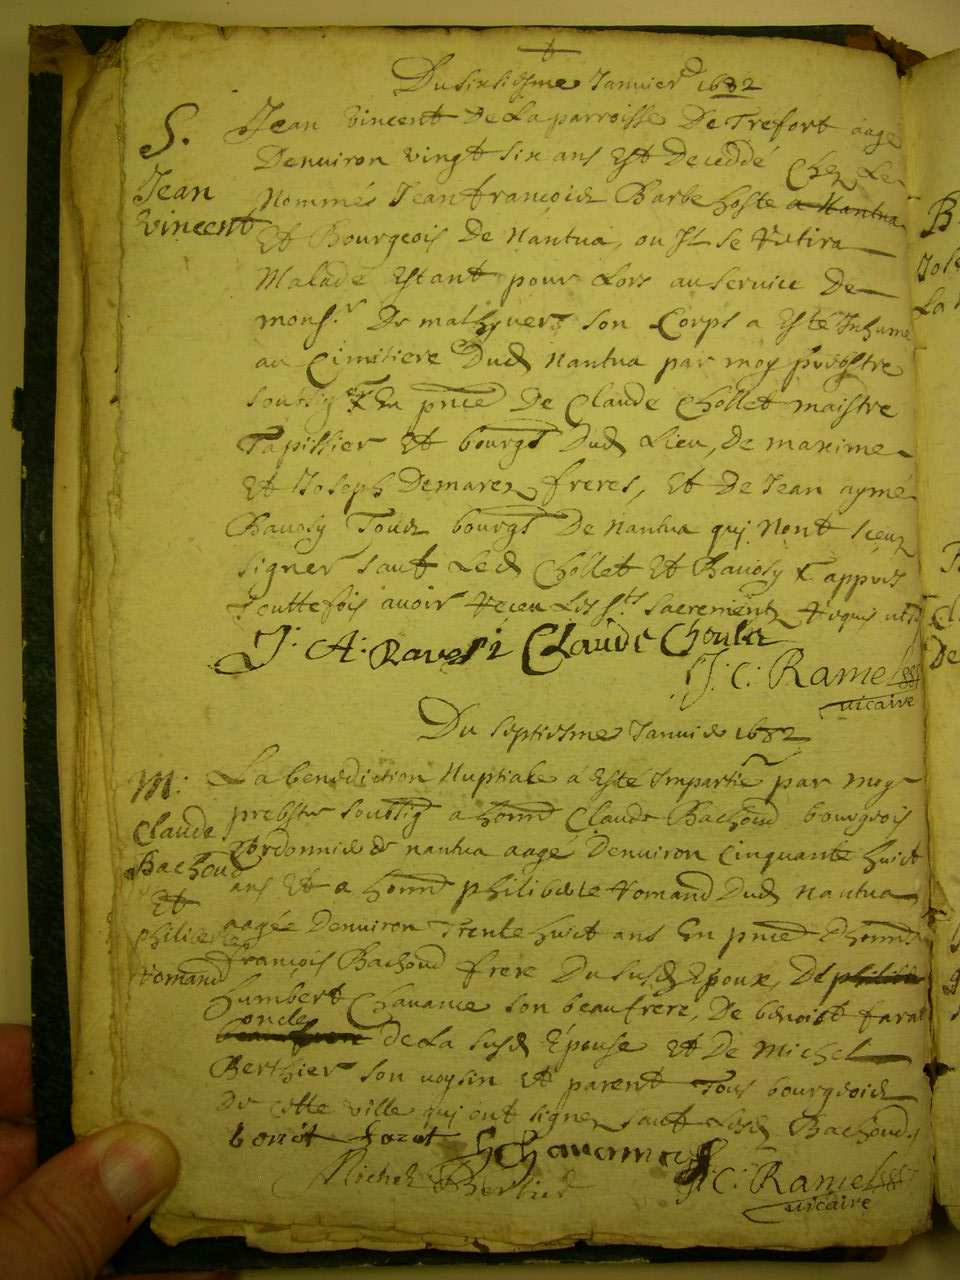 Du sixsiesme Janvier 1682
S. Jean Vincent
Jean Vincent De La parroisse De Trefort aage
Denuiron vingt six ans Est Deceddé Chez Le
Nommés Jean francois Barbe hoste a Nantua
Et Bourgeois De Nantua, ou Il se Retira
Malade Estant pour Lors au service De
mons.r De mathyver son Corps a Esté Inhumé
au Cimitiere Dud Nantua par moy prebstre
soubsig.é Et En pnce De Claude Chollet maistre
Tapissier Et bourgs Dud Lieu, De maxime
Et Joseph Demarez freres, Et De Jean aymé
Ravosy Tous bourgs De Nantua qui Nont sceu
signer sauf Led Chollet Et Ravosy & appres
Touttefois avoir Receu Les Sts sacrements Requis
J. A. Ravosi Claude Choulet
J. C. Ramel
vicaire
Du septiesme Janvier 1682
M: Claude Bachoud Et Philiberte Romand
La benediction Nuptiale a Esté Impartie par Moy
prebstre soubsig a honn Claude Bachoud bourgeois
Cordonnier de nantua aagé Denuiron Cinquante huict
ans Et a honn philiberte Romand Dud Nantua
aagée Denuiron Trente huict ans En pnce Dhonn
francois Bachoud frere Du susd Epoux, De philib
humbert Chavance son beaufrere, De benoist farat
oncle
beaufrere de La susd Epouse Et De Michel
Berthier son voysin Et parent Tous bourgeois
De Cette ville qui ont signez sauf Lesd Bachoud
bonoit farat H Chavance
Michel Bertier J. C. Ramel
vicaire